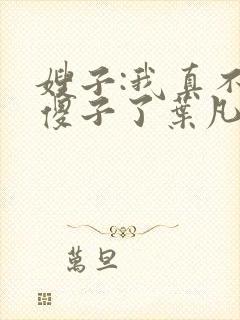 嫂子:我真不
傻子了葉凡
萬旦